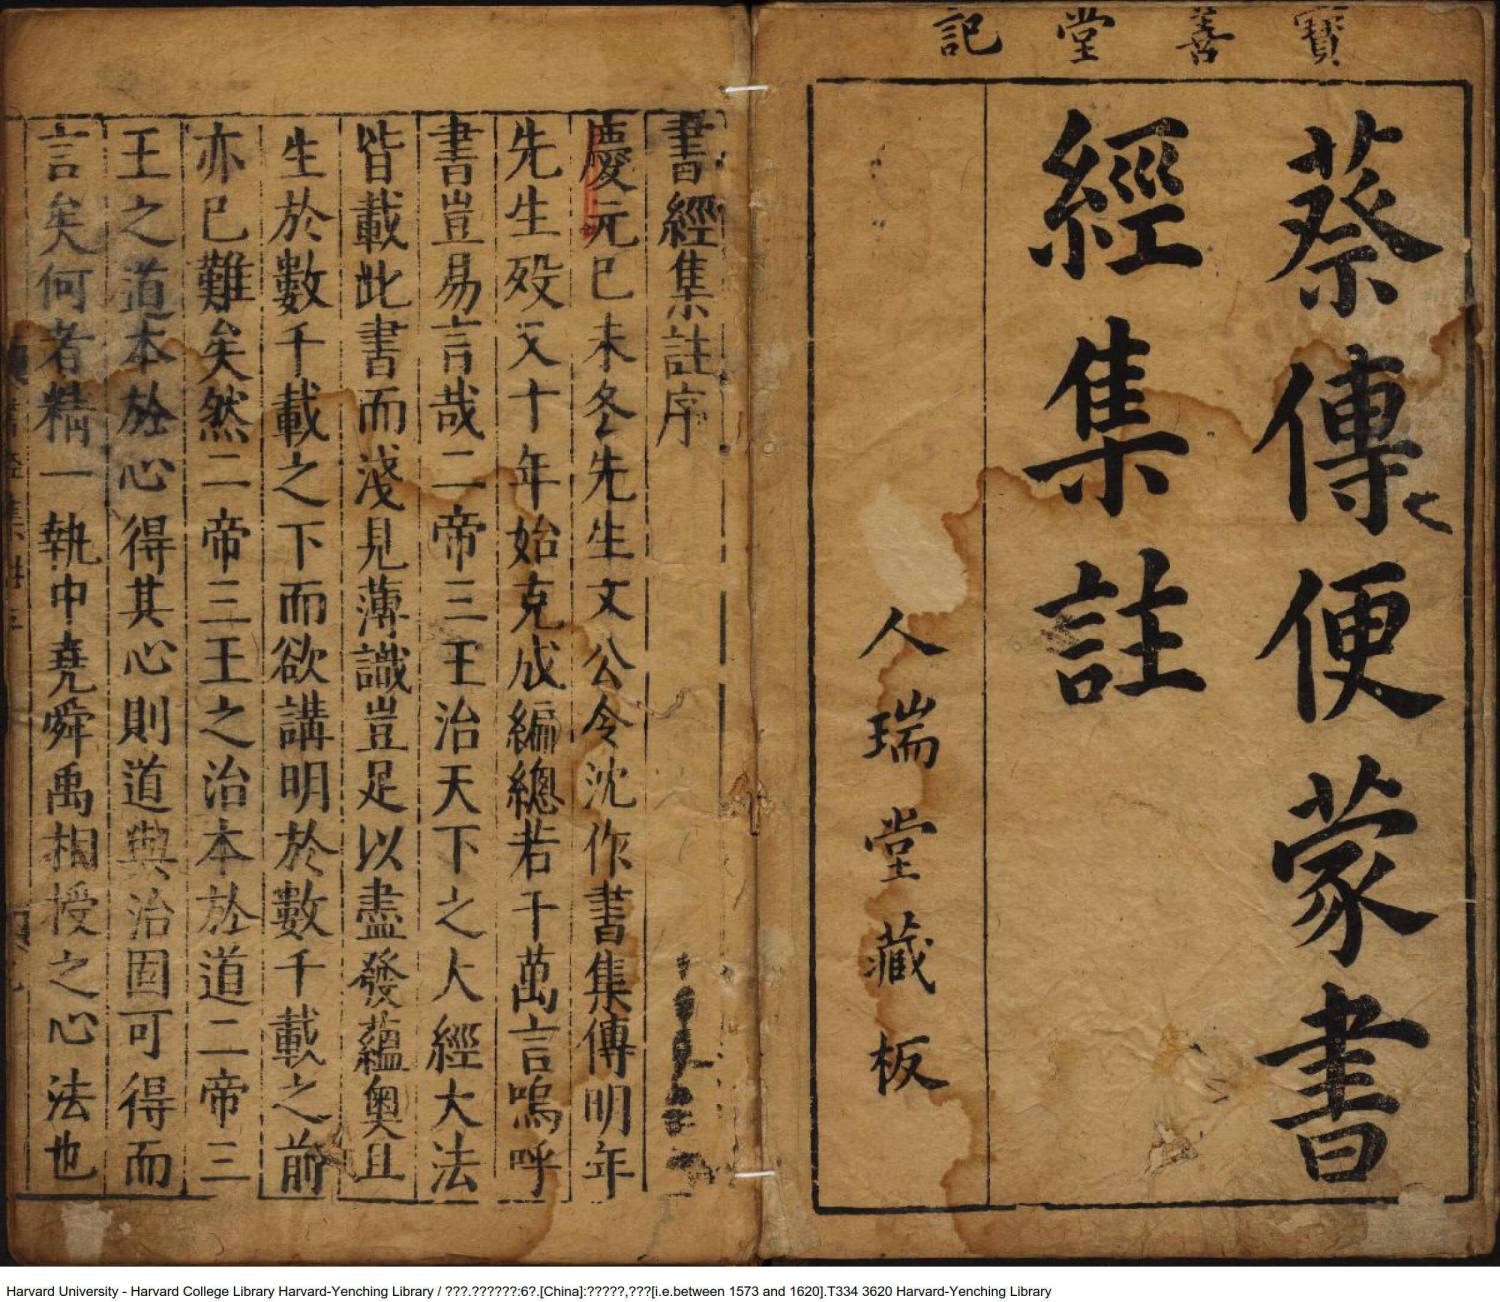 寶善堂記
蔡傳便蒙書
經集註
人瑞堂藏板
書經集註序
慶元己未冬先生文公令沈作書集傳明年
先生歿又十年始克成編總若干萬言嗚呼
書豈易言哉二帝三王治天下之大經大法
皆載此書而淺見薄識豈足以盡發蘊奧且
生於數千載之下而欲講明於數千載之前
亦已難矣然二帝三王之治本於道二帝三
王之道本於心得其心則道與治固可得而
言矣何者精一執中堯舜禹相授之心法也
Harvard University - Harvard College Library Harvard-Yenching Library / ???.??????:6?.[China]:?????,???[i.e.between 1573 and 1620].T334 3620 Harvard-Yenching Library